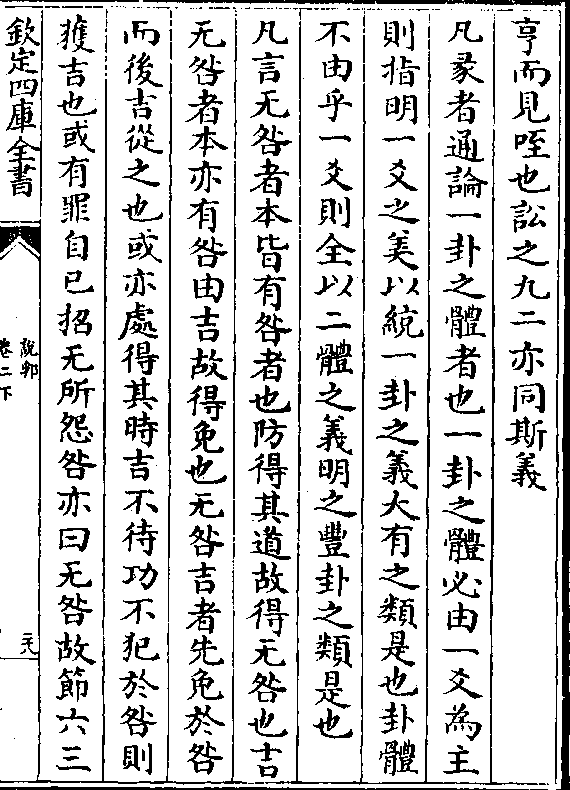 亨而見咥也訟之九二亦同斯義
凡彖者通論一卦之體者也一卦之體必由一爻為主
則指明一爻之美以統一卦之義大有之類是也卦體
不由乎一爻則全以二體之義明之豐卦之類是也
凡言无咎者本皆有咎者也防得其道故得无咎也吉
无咎者本亦有咎由吉故得免也无咎吉者先免於咎
而後吉從之也或亦處得其時吉不待功不犯於咎則
獲吉也或有罪自己招无所怨咎亦曰无咎故節六三
欽定四庫全書
說郛
卷二下